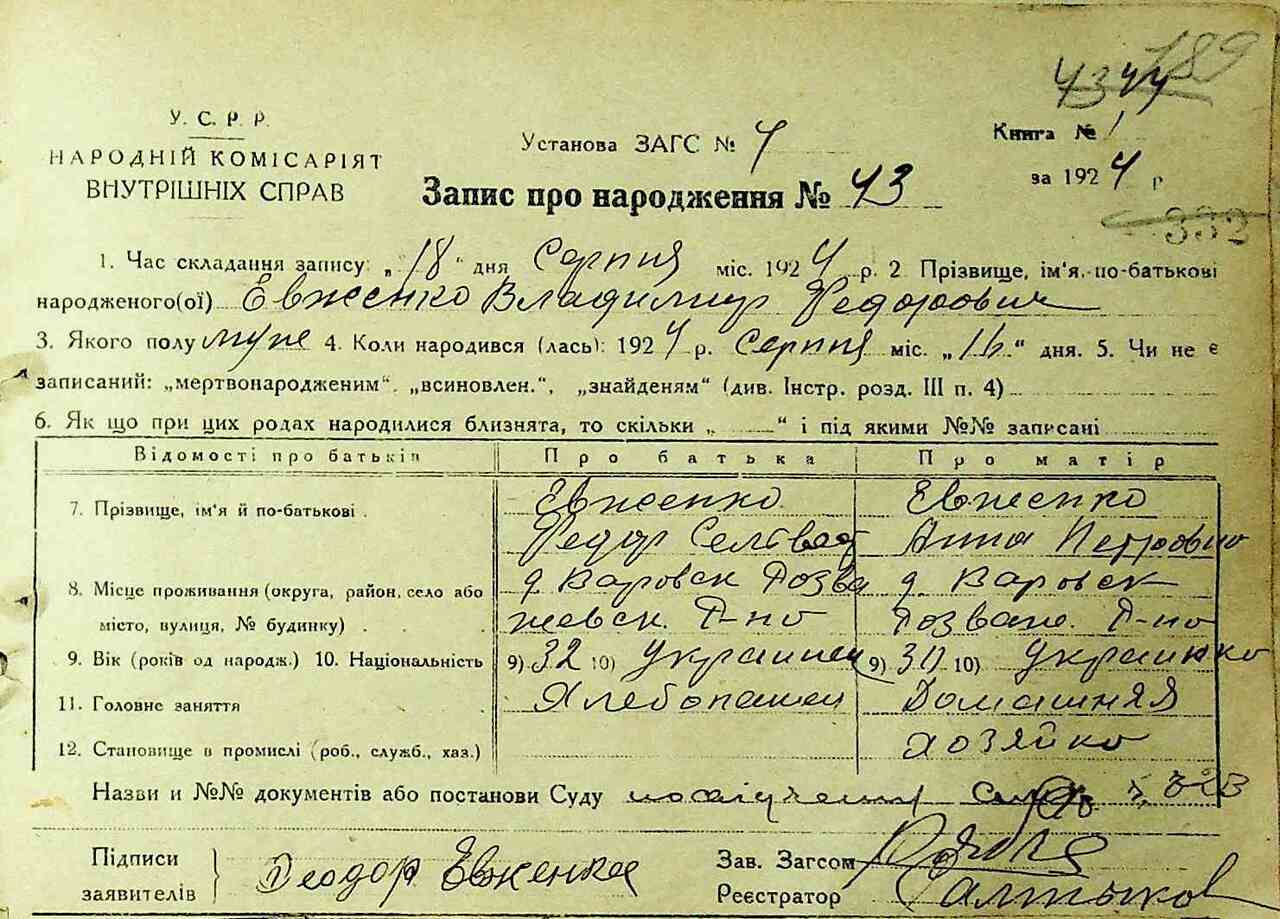 4344 789
У. С. Р. Р.
НАРОДНІЙ КОМІСАРІЯТ
ВНУТРІШНІХ СПРАВ
Установа ЗАГС № 4
Книга № 1
за 1924 р
Запис про народження № 43
332
1. Час складання запису: „18“ дня Серпня міс. 1924 р. 2 Прізвище, ім'я, по-батькові
народженого(ої) Евженко Владимир Федорович
3. Якого полу муж 4. Коли народився (лась): 1924 р. Серпня міс. „16“ дня. 5. Чи не є
записаний: „мертвонародженим“. „всиновлен.“, „знайденям“ (див. Інстр. розд. III п. 4)
6. Як що при цих родах народилися близнята, то скільки „ “ і під якими №№ записані
Відомості про батьків Про батька Про матір
7. Прізвище, ім'я й по-батькові Евженко Евженко
Федор Анна Петровно
8. Місце проживання (округа, район, село або д Варовск Розва д Варовск
місто, вулиця, № будинку) жевск. Р-но Розваж. Р-но
9. Вік (років од народж.) 10. Національність 9) 32 10) Украинец 9) 30 10) Украинко
11. Головне заняття Хлебопашец Домашняя
12. Становище в промислі (роб., служб., хаз.) хозяйко
Назви и №№ документів або постанови Суду
Підписи заявителів Феодор Евженко
Зав. Загсом
Реєстратор Салтыков